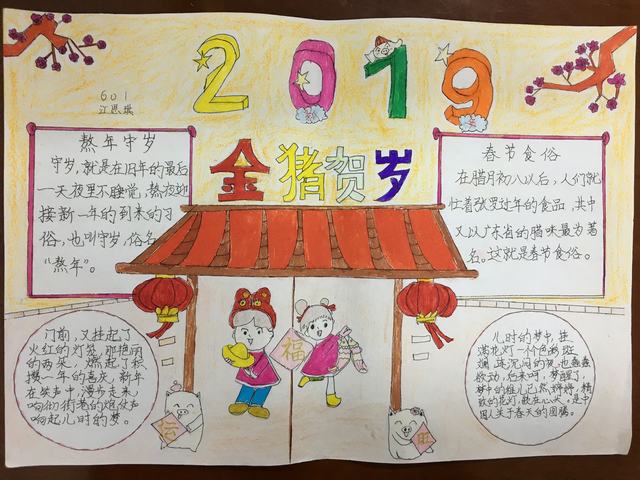 2019
601
江思琪
金猪贺岁
熬年守岁
守岁,就是在旧年的最后
一天夜里不睡觉,熬夜迎
接新一年的到来的习
俗,也叫守岁,俗名
“熬年”。
春节食俗
在腊月初八以后,人们就
忙着张罗过年的食品,其中
又以广东省的腊味最为著
名。这就是春节食俗。
福
门前,又挂起了
火红的灯笼,那艳丽
的两朵,燃起了积
攒一年的喜庆,新年
在笑声中,漫步走来,
响彻街巷的炮仗声
响起儿时的梦。
儿时的梦中,挂
满花灯一个个色彩斑
斓,珠沉闷的夜也蠢蠢
欲动,后来呵,梦醒了,
梦中的纸儿已然姗姗,精
致的花灯歇在心头,是中
国人生于春天的图腾。
旺